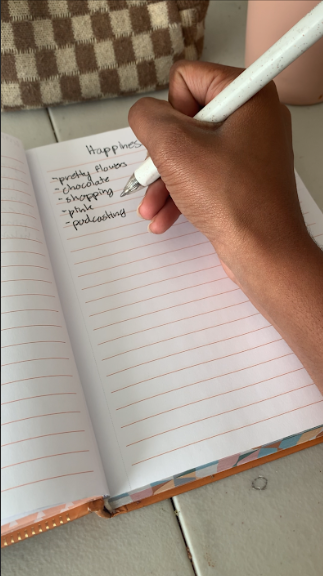 Happiness
-pretty flowers
-chocolate
-shopping
-pink
-podcasting